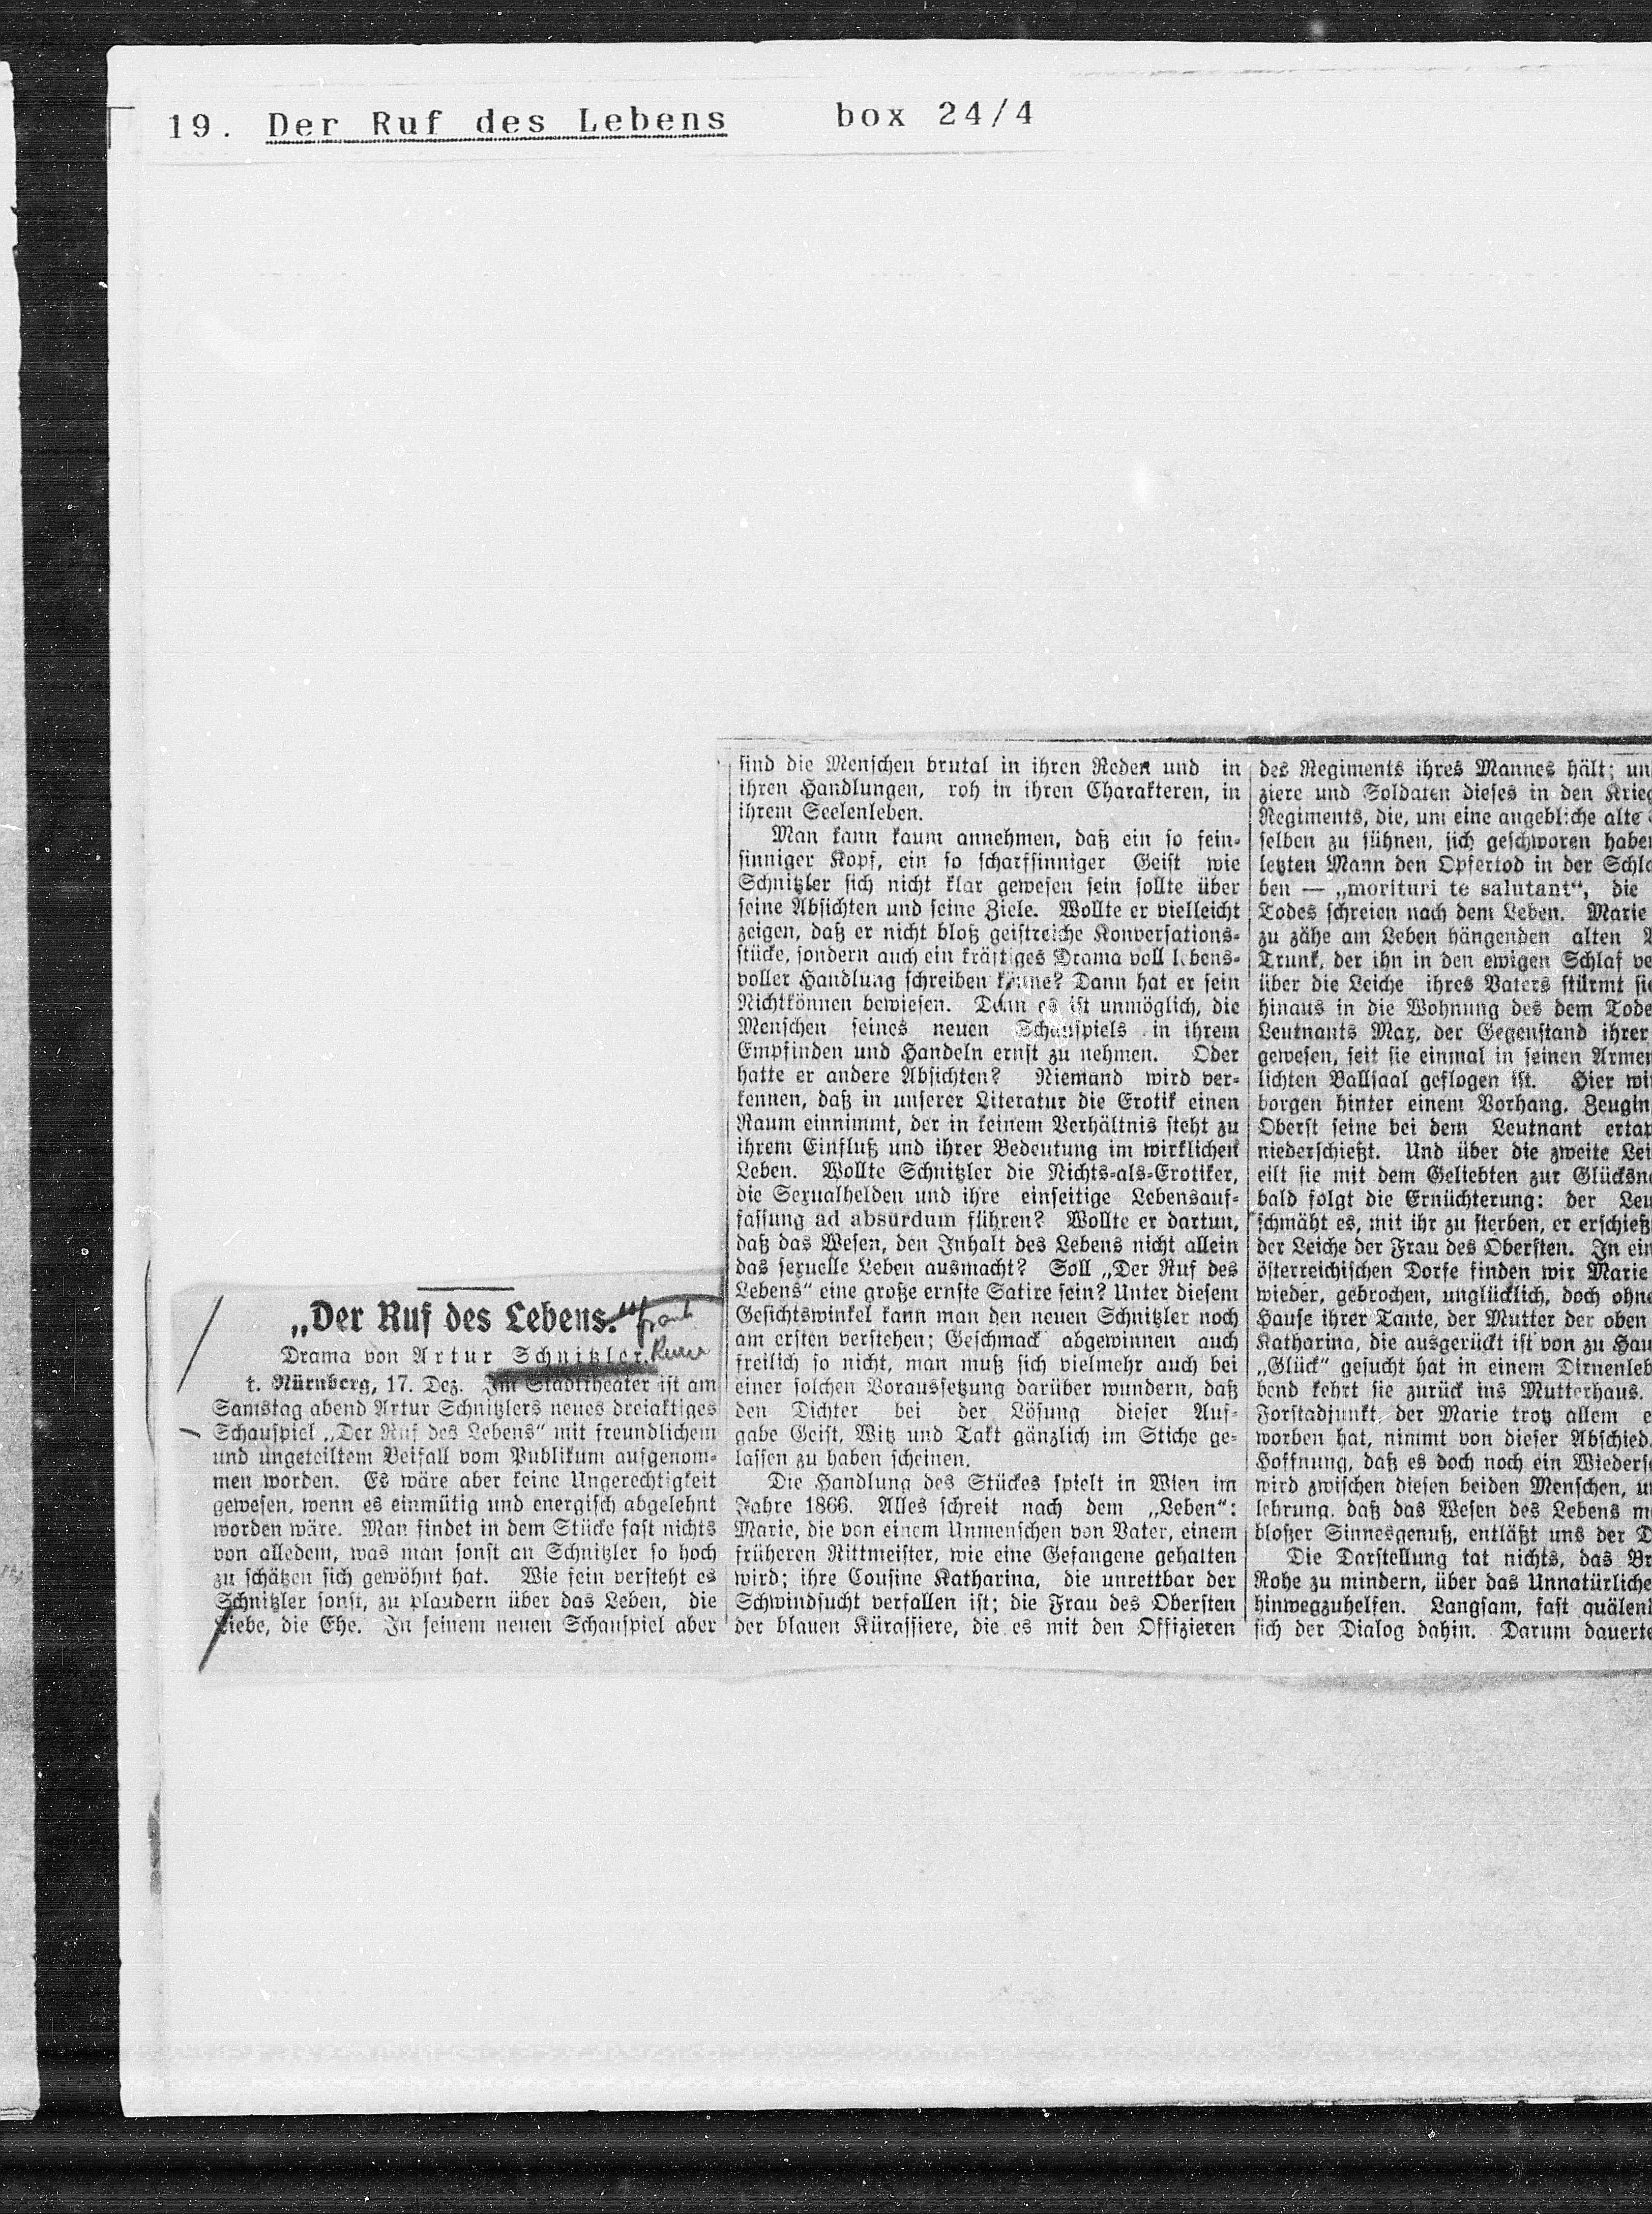 19. Der Ruf des Lebens box 24/4
„Der Ruf des Lebens.“
Drama von Artur Schnitzler.
t. Nürnberg, 17. Dez. Im Stadttheater ist am
Samstag abend Artur Schnitzlers neues dreiaktiges
Schauspiel „Der Ruf des Lebens“ mit freundlichem
und ungeteiltem Beifall vom Publikum aufgenom-
men worden. Es wäre aber keine Ungerechtigkeit
gewesen, wenn es einmütig und energisch abgelehnt
worden wäre. Man findet in dem Stücke fast nichts
von alledem, was man sonst an Schnitzler so hoch
zu schätzen sich gewöhnt hat. Wie fein versteht es
Schnitzler sonst, zu plaudern über das Leben, die
Liebe, die Ehe. In seinem neuen Schauspiel aber
sind die Menschen brutal in ihren Reden und in
ihren Handlungen, roh in ihren Charakteren, in
ihrem Seelenleben.
Man kann kaum annehmen, daß ein so fein-
sinniger Kopf, ein so scharfsinniger Geist wie
Schnitzler sich nicht klar gewesen sein sollte über
seine Absichten und seine Ziele. Wollte er vielleicht
zeigen, daß er nicht bloß geistreiche Konversations-
stücke, sondern auch ein kräftiges Drama voll lebens-
voller Handlung schreiben könne? Dann hat er sein
Nichtkönnen bewiesen. Denn es ist unmöglich, die
Menschen seines neuen Schauspiels in ihrem
Empfinden und Handeln ernst zu nehmen. Oder
hatte er andere Absichten? Niemand wird ver-
kennen, daß in unserer Literatur die Erotik einen
Raum einnimmt, der in keinem Verhältnis steht zu
ihrem Einfluß und ihrer Bedeutung im wirklichen
Leben. Wollte Schnitzler die Nichts-als-Erotiker,
die Sexualhelden und ihre einseitige Lebensauf-
fassung ad absurdum führen? Wollte er dartun,
daß das Wesen, den Inhalt des Lebens nicht allein
das sexuelle Leben ausmacht? Soll „Der Ruf des
Lebens“ eine große ernste Satire sein? Unter diesem
Gesichtswinkel kann man den neuen Schnitzler noch
am ersten verstehen; Geschmack abgewinnen auch
freilich so nicht, man muß sich vielmehr auch bei
einer solchen Voraussetzung darüber wundern, daß
den Dichter bei der Lösung dieser Auf-
gabe Geist, Witz und Takt gänzlich im Stiche ge-
lassen zu haben scheinen.
Die Handlung des Stückes spielt in Wien im
Jahre 1866. Alles schreit nach dem „Leben“:
Marie, die von einem Unmenschen von Vater, einem
früheren Rittmeister, wie eine Gefangene gehalten
wird; ihre Cousine Katharina, die unrettbar der
Schwindsucht verfallen ist; die Frau des Obersten
der blauen Kürassiere, die es mit den Offizieren
des Regiments ihres Mannes hält; un
ziere und Soldaten dieses in den Krieg
Regiments, die, um eine angebliche alte
selben zu sühnen, sich geschworen haben
letzten Mann den Opfertod in der Schla
ben — „morituri te salutant“, die
Todes schreien nach dem Leben. Marie
zu zähe am Leben hängenden alten
Trunk, der ihn in den ewigen Schlaf ve
über die Leiche ihres Vaters stürmt sie
hinaus in die Wohnung des dem Tode
Leutnants Max, der Gegenstand ihrer
gewesen, seit sie einmal in seinen Armen
lichten Ballsaal geflogen ist. Hier wi
borgen hinter einem Vorhang, Zeugin
Oberst seine bei dem Leutnant ertap
niederschießt. Und über die zweite Lei
eilt sie mit dem Geliebten zur Glücksn
bald folgt die Ernüchterung: der Leu
schmäht es, mit ihr zu sterben, er erschieß
der Leiche der Frau des Obersten. In ein
österreichischen Dorfe finden wir Marie
wieder, gebrochen, unglücklich, doch ohne
Hause ihrer Tante, der Mutter der oben
Katharina, die ausgerückt ist von zu Hau
„Glück“ gesucht hat in einem Dirnenleb
bend kehrt sie zurück ins Mutterhaus.
Forstadjunkt, der Marie trotz allem e
worben hat, nimmt von dieser Abschied.
Hoffnung, daß es doch noch ein Wieders
wird zwischen diesen beiden Menschen, un
lehrung, daß das Wesen des Lebens me
bloßer Sinnesgenuß, entläßt uns der D
Die Darstellung tat nichts, das Br
Rohe zu mindern, über das Unnatürliche
hinwegzuhelfen. Langsam, fast quälend
sich der Dialog dahin. Darum dauerte